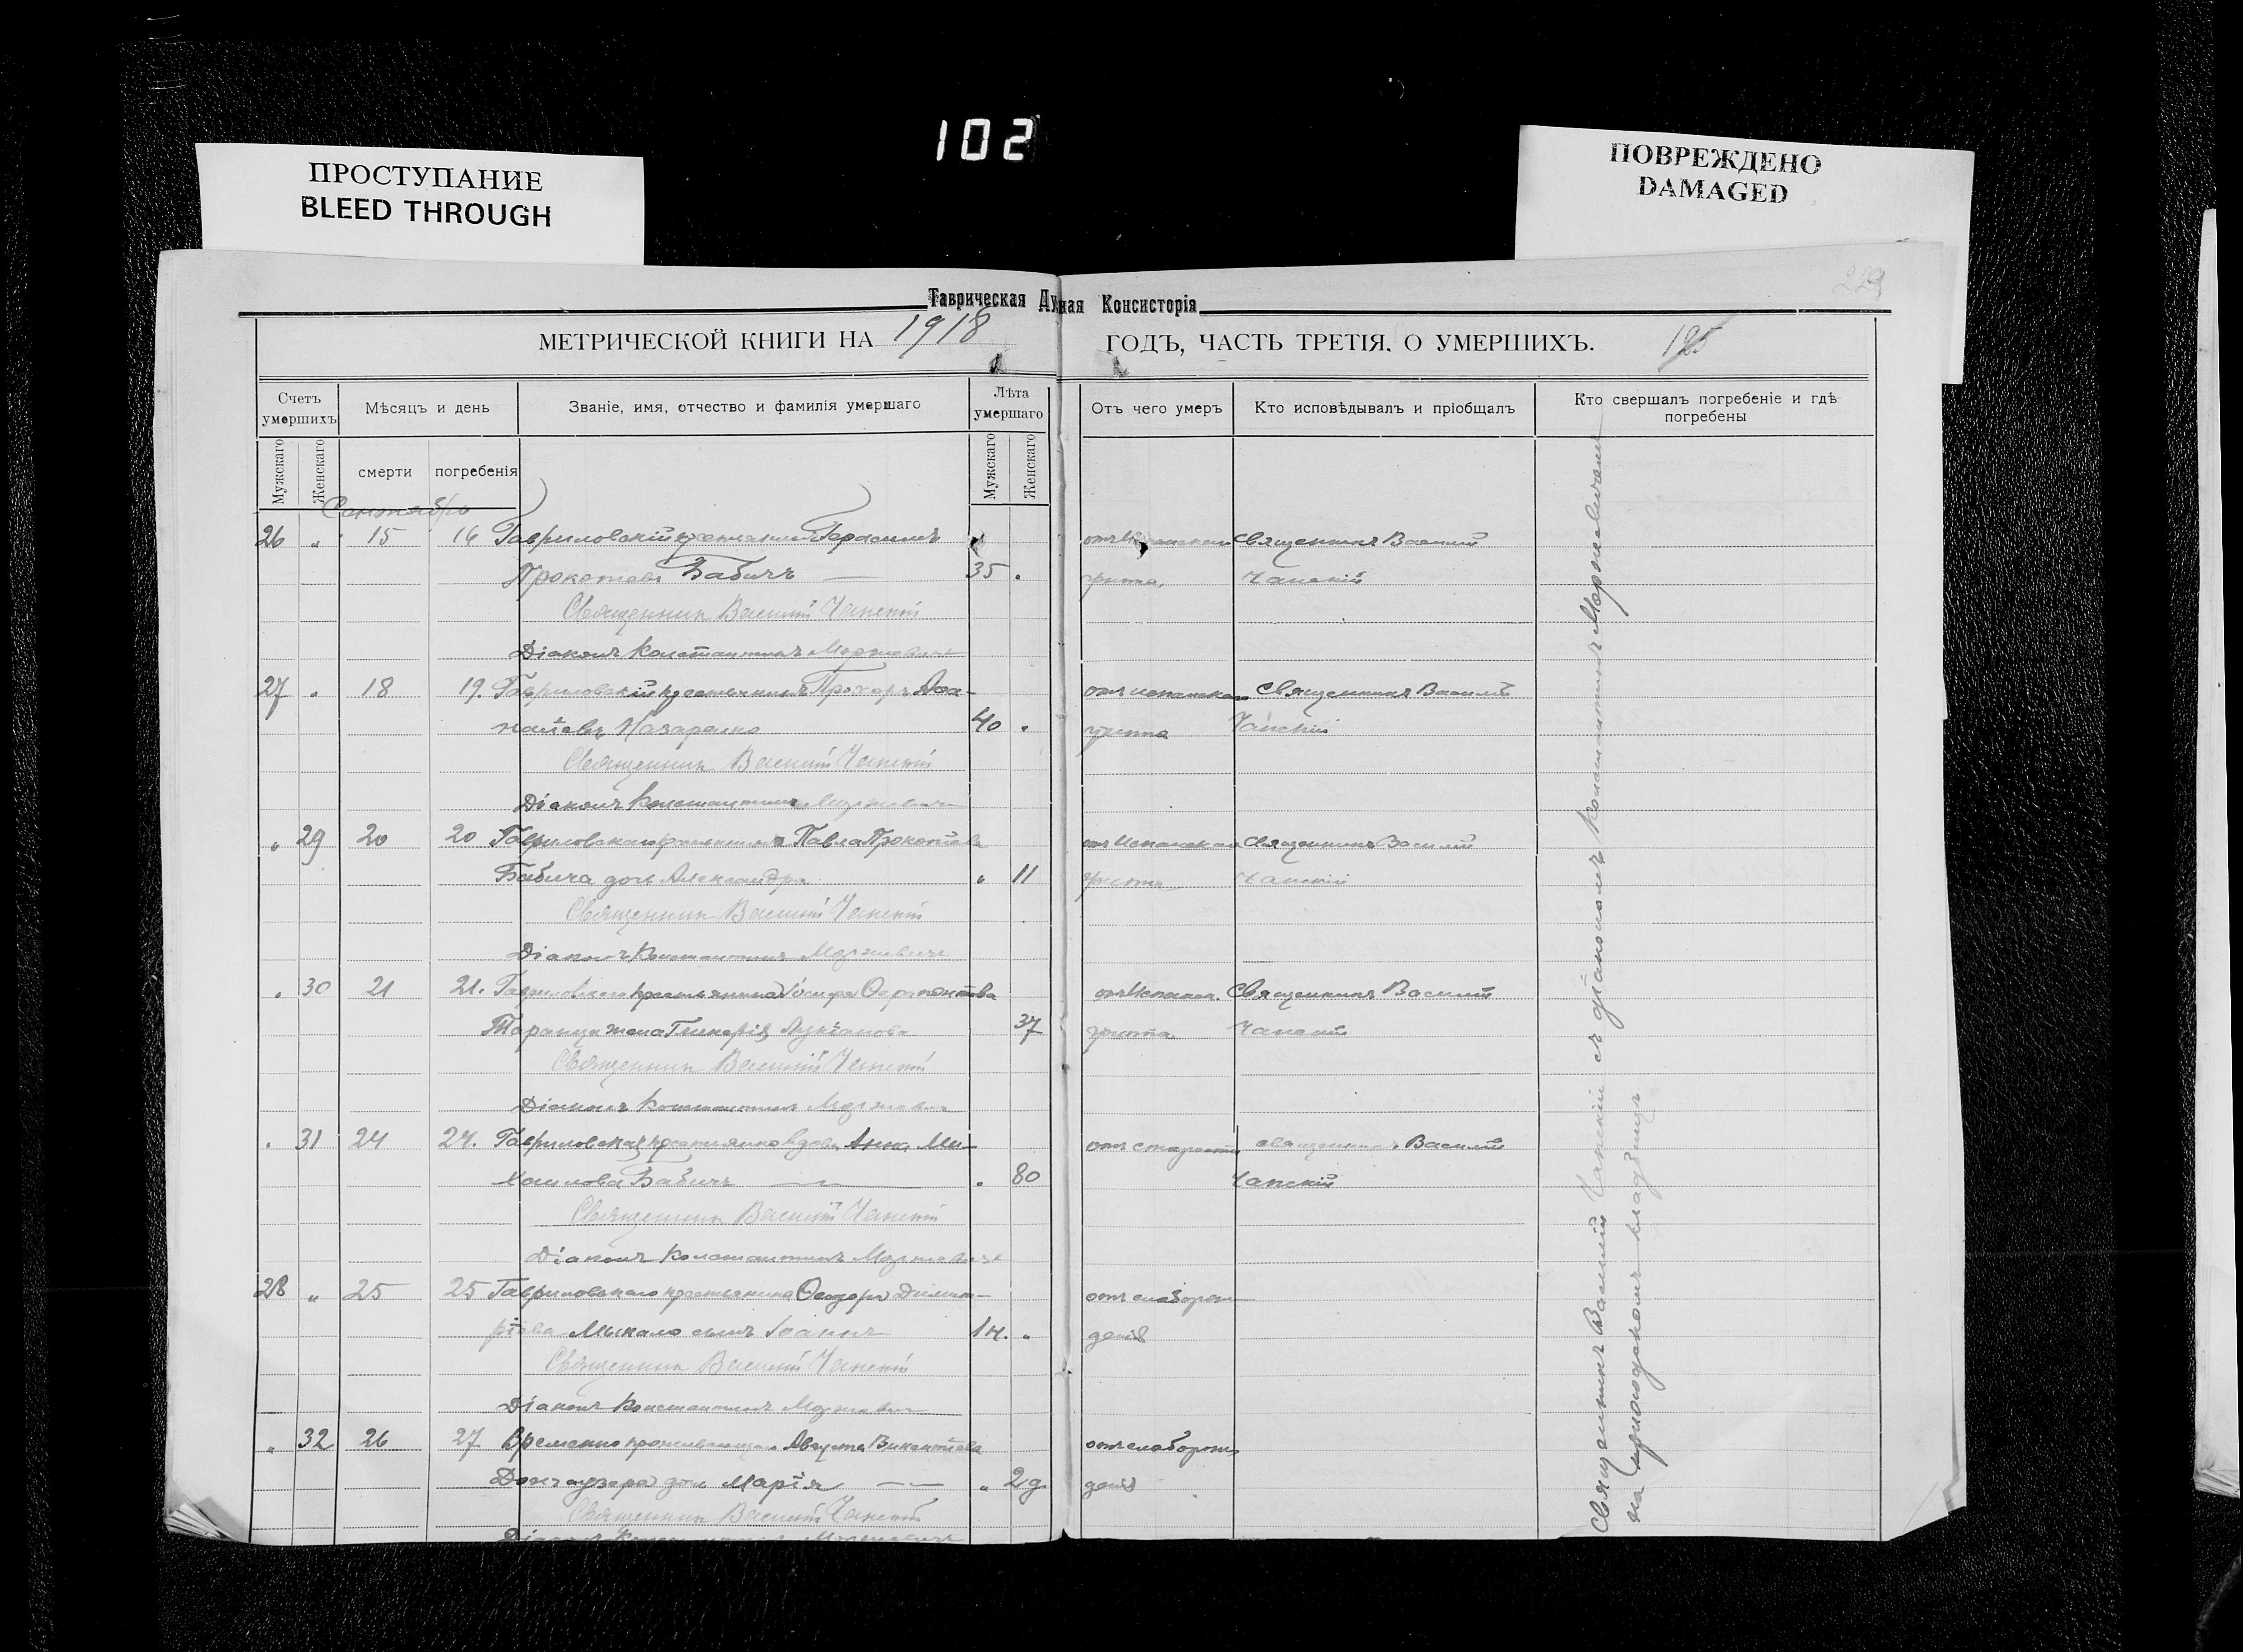 102
ПРОСТУПАНИЕ
BLEED THROUGH
ПОВРЕЖДЕНО
DAMAGED
229
Таврическая Духная Консисторія
МЕТРИЧЕСКОЙ КНИГИ НА 1918 ГОДЪ, ЧАСТЬ ТРЕТІЯ, О УМЕРШИХЪ. 125
Счетъ умершихъ
Мѣсяцъ и день
Званіе, имя, отчество и фамилія умершаго
Лѣта умершаго
Отъ чего умеръ
Кто исповѣдывалъ и пріобщалъ
Кто свершалъ погребеніе и гдѣ погребены
Мужскаго
Женскаго
смерти
погребенія
Мужскаго
Женскаго
Сентябрь
26 „ 15 16 Гавриловскій крестьянинъ Герасимъ отъ испанскаго Священникъ Василій
Прокопіевъ Бабичъ — 35 . гриппа. Чапскій
Священникъ Василій Чапскій
Діаконъ Константинъ Моржевичъ
27 „ 18 19. Гавриловскій крестьянинъ Прохоръ Аѳа- отъ испанскаго Священникъ Василій
насіевъ Назаренко 40 . гриппа Чапскій
Священникъ Василій Чапскій
Діаконъ Константинъ Моржевичъ
„ 29 20 20 Гавриловскаго крестьянина Павла Прокопіева отъ Испанскаго Священникъ Василій
Бабича дочь Александра „ 11 гриппа Чапскій
Священникъ Василій Чапскій
Діаконъ Константинъ Моржевичъ
. 30 21 21. Гавриловскаго крестьянина Іосифа отъ Испанск. Священникъ Василій
жена Гликерія 37 гриппа Чапскій
Священникъ Василій Чапскій
Діаконъ Константинъ Моржевичъ
. 31 24 24. Гавриловская крестьянка вдова Анна Ми- отъ старости священникъ Василій
хаилова Бабичъ — . 80 Чапскій
Священникъ Василій Чапскій
Діаконъ Константинъ Моржевичъ
28 „ 25 25 Гавриловскаго крестьянина Ѳеодора Димит- отъ слаборож
ріева сынъ Іоаннъ 14. „ денія
Священникъ Василій Чапскій
Діаконъ Константинъ Моржевичъ
„ 32 26 27 Временно проживающаго Августа Викентіева отъ слаборож
дочь Марія — „ 2 д. денія
Священникъ Василій Чапскій
Діаконъ Константинъ Моржевичъ
Священникъ Василій Чапскій съ діакономъ Константиномъ Моржевичемъ
на приходскомъ кладбищѣ